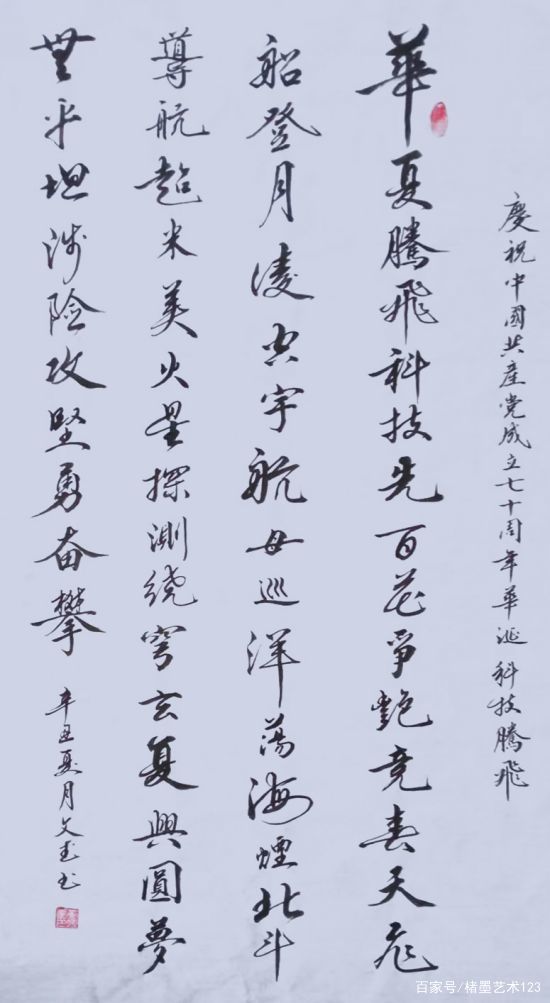 慶祝中國共産党成立七十周年華诞科技騰飛
華夏騰飛科技先百花爭艷竞春天飛
船登月凌空宇航母巡洋蕩海煙北斗
導航超米美火星探測绕穹玄复興圓夢
無平坦涉險攻堅勇奋攀
辛丑夏月文书
百家号/楮墨艺术123